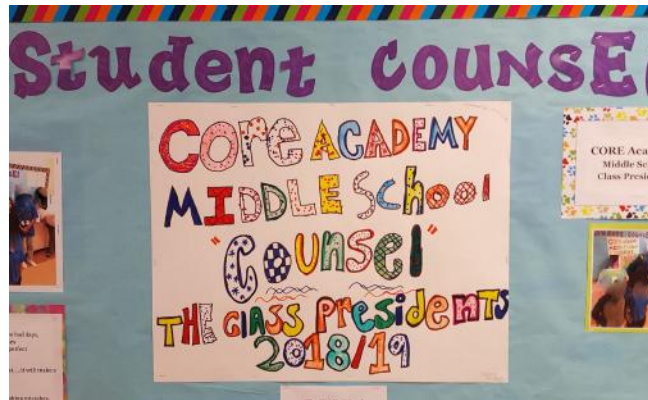 Student COUNSE
Core ACADEMY
MIDDLE School
"Counsel"
THE ClASS PresidenTS
2018/19
CORE Aca
Middle Sc
Class Presi